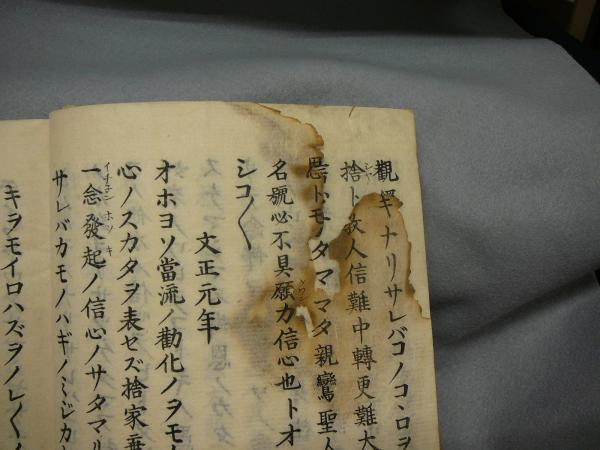 觀ヲキナリサレバコノコヽロヲ
捨ト教人信難中轉更難大
恩トモノタママタ親鸞聖人
名號必不具願力信心也トオ
シコ〱
文正元年
オホヨソ當流ノ勸化ノヲモ
心ノスカタヲ表セズ捨家
一念發起ノ信心ノサタマリ
サレバカモノハギノミジカ
キラモイロハズヲノレ〱